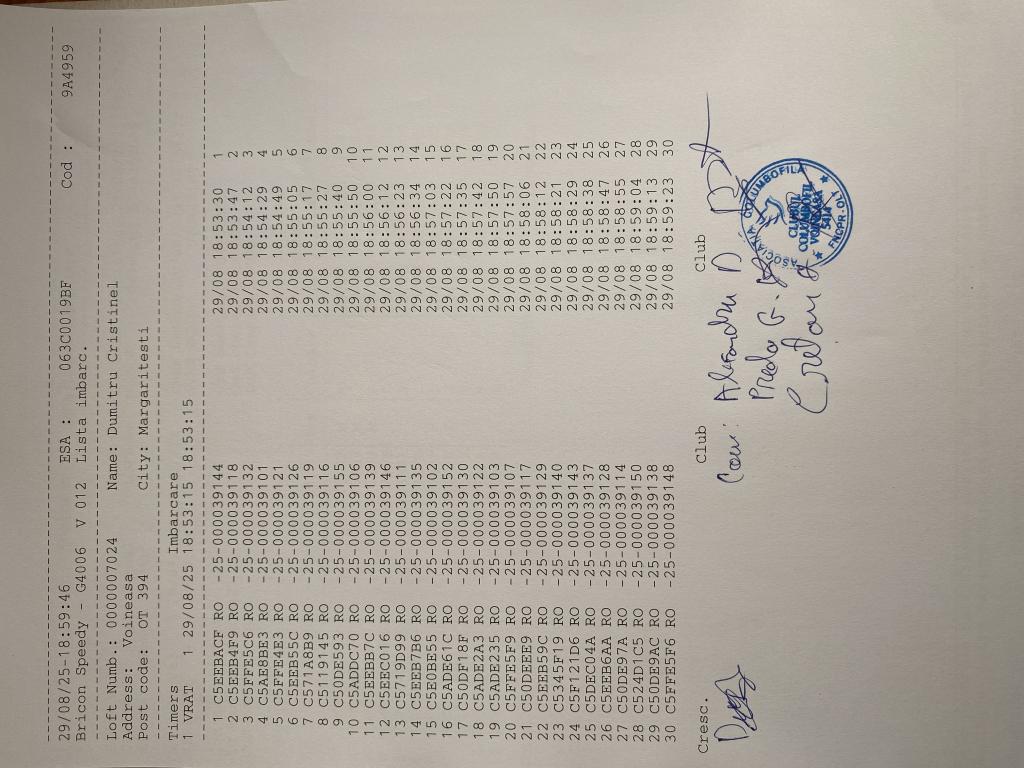 29/08/25-18:59:46 ESA : 063C0019BF Cod : 9A4959
Bricon Speedy - G4006 V 012 Lista imbarc.
Loft Numb.: 0000007024 Name: Dumitru Cristinel
Address: Voineasa
Post code: OT 394 City: Margaritesti
Timers Imbarcare
1 VRAT 1 29/08/25 18:53:15 18:53:15
1 C5EEBACF RO -25-000039144 29/08 18:53:30 1
2 C5EEB4F9 RO -25-000039118 29/08 18:53:47 2
3 C5FFE5C6 RO -25-000039132 29/08 18:54:12 3
4 C5AE8BE3 RO -25-000039101 29/08 18:54:29 4
5 C5FFE4E3 RO -25-000039121 29/08 18:54:49 5
6 C5EEB55C RO -25-000039126 29/08 18:55:05 6
7 C571A8B9 RO -25-000039119 29/08 18:55:17 7
8 C5119145 RO -25-000039116 29/08 18:55:27 8
9 C50DE593 RO -25-000039155 29/08 18:55:40 9
10 C5ADDC70 RO -25-000039106 29/08 18:55:50 10
11 C5EEBB7C RO -25-000039139 29/08 18:56:00 11
12 C5EEC016 RO -25-000039146 29/08 18:56:12 12
13 C5719D99 RO -25-000039111 29/08 18:56:23 13
14 C5EEB7B6 RO -25-000039135 29/08 18:56:34 14
15 C5E0BE55 RO -25-000039102 29/08 18:57:03 15
16 C5ADE61C RO -25-000039152 29/08 18:57:22 16
17 C50DF18F RO -25-000039130 29/08 18:57:35 17
18 C5ADE2A3 RO -25-000039122 29/08 18:57:42 18
19 C5ADE235 RO -25-000039103 29/08 18:57:50 19
20 C5FFE5F9 RO -25-000039107 29/08 18:57:57 20
21 C50DEEE9 RO -25-000039117 29/08 18:58:06 21
22 C5EEB59C RO -25-000039129 29/08 18:58:12 22
23 C5345F19 RO -25-000039140 29/08 18:58:21 23
24 C5F121D6 RO -25-000039143 29/08 18:58:29 24
25 C5DEC04A RO -25-000039137 29/08 18:58:38 25
26 C5EEB6AA RO -25-000039128 29/08 18:58:47 26
27 C50DE97A RO -25-000039114 29/08 18:58:55 27
28 C524D1C5 RO -25-000039150 29/08 18:59:04 28
29 C50DE9AC RO -25-000039138 29/08 18:59:13 29
30 C5FFE5F6 RO -25-000039148 29/08 18:59:23 30
Cresc. Club Club
Preda G.
ASOCIATIA COLUMBOFILA
CLUBUL
COLUMBOFIL
VOINEASA
FNCPR-OLT